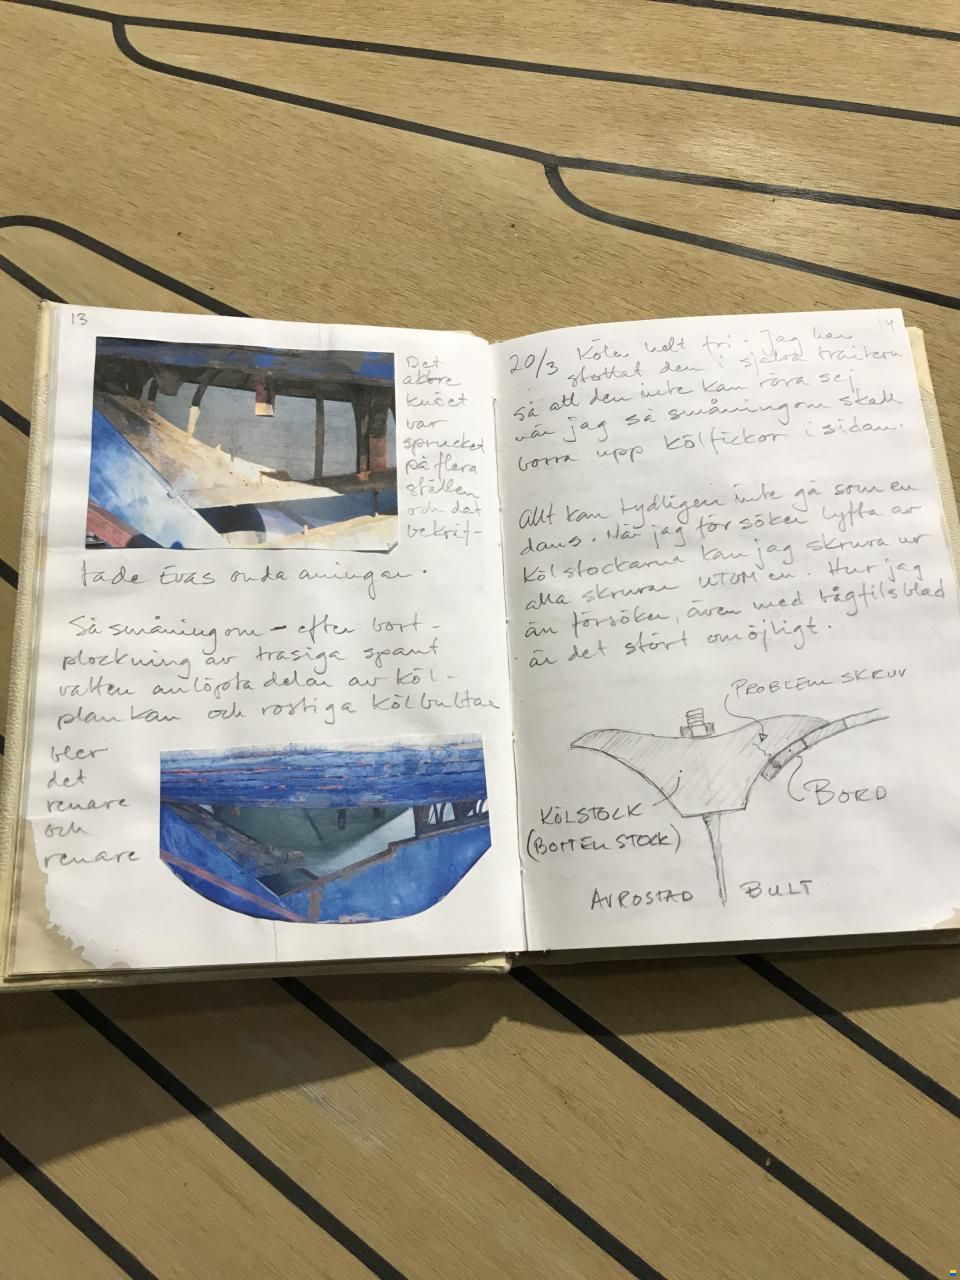 13
Det
aktre
knäet
var
sprucket
på flera
ställen
och det
bekräf-
tade Evas onda aningar.
Så småningom - efter bort-
plockning av trasiga spant
vatten anlöpta delar av köl-
plankan och rostiga kölbultar
blev
det
renare
och
renare
14
20/3 Kölen helt fri. Jag har
stöttat den i själva trailern
så att den inte kan röra sej
när jag så småningom skall
borra upp kölfickor i sidan.
Allt kan tydligen inte gå som en
dans. När jag försöker lyfta av
kölstockarna kan jag skruva ur
alla skruvar UTOM en. Hur jag
än försöker, även med bågfilsblad
är det stört omöjligt.
PROBLEM SKRUV
BORD
KÖLSTOCK
(BOTTEN STOCK)
AVROSTAD BULT